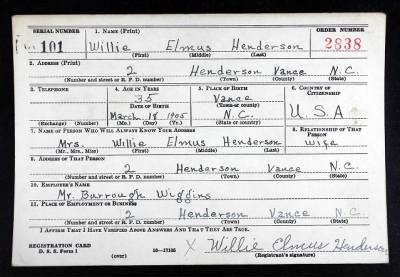 SERIAL NUMBER 1. NAME (Print) ORDER NUMBER
101 Willie Elmus Henderson 2838
(First) (Middle) (Last)
2. ADDRESS (Print)
2 Henderson Vance N.C.
(Number and street or R. F. D. number) (Town) (County) (State)
3. TELEPHONE 4. AGE IN YEARS 5. PLACE OF BIRTH 6. COUNTRY OF CITIZENSHIP
35 Vance
DATE OF BIRTH (Town or county)
March 18 1905 N.C. U.S.A
(Exchange) (Number) (Mo.) (Day) (Yr.) (State or country)
7. NAME OF PERSON WHO WILL ALWAYS KNOW YOUR ADDRESS 8. RELATIONSHIP OF THAT PERSON
Mrs. Willie Elmus Henderson wife
(Mr., Mrs., Miss) (First) (Middle) (Last)
9. ADDRESS OF THAT PERSON
2 Henderson Vance N.C.
(Number and street or R. F. D. number) (Town) (County) (State)
10. EMPLOYER'S NAME
Mr. Burrough Wiggins
11. PLACE OF EMPLOYMENT OR BUSINESS
2 Henderson Vance N.C.
(Number and street or R. F. D. number) (Town) (County) (State)
I AFFIRM THAT I HAVE VERIFIED ABOVE ANSWERS AND THAT THEY ARE TRUE.
REGISTRATION CARD
D. S. S. Form 1 (over) 16—17105 X Willie Elmus Henderson
(Registrant's signature)